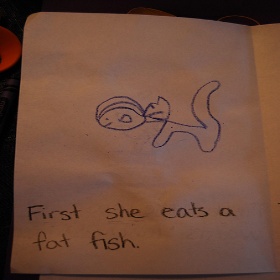 First she eats a
fat fish.